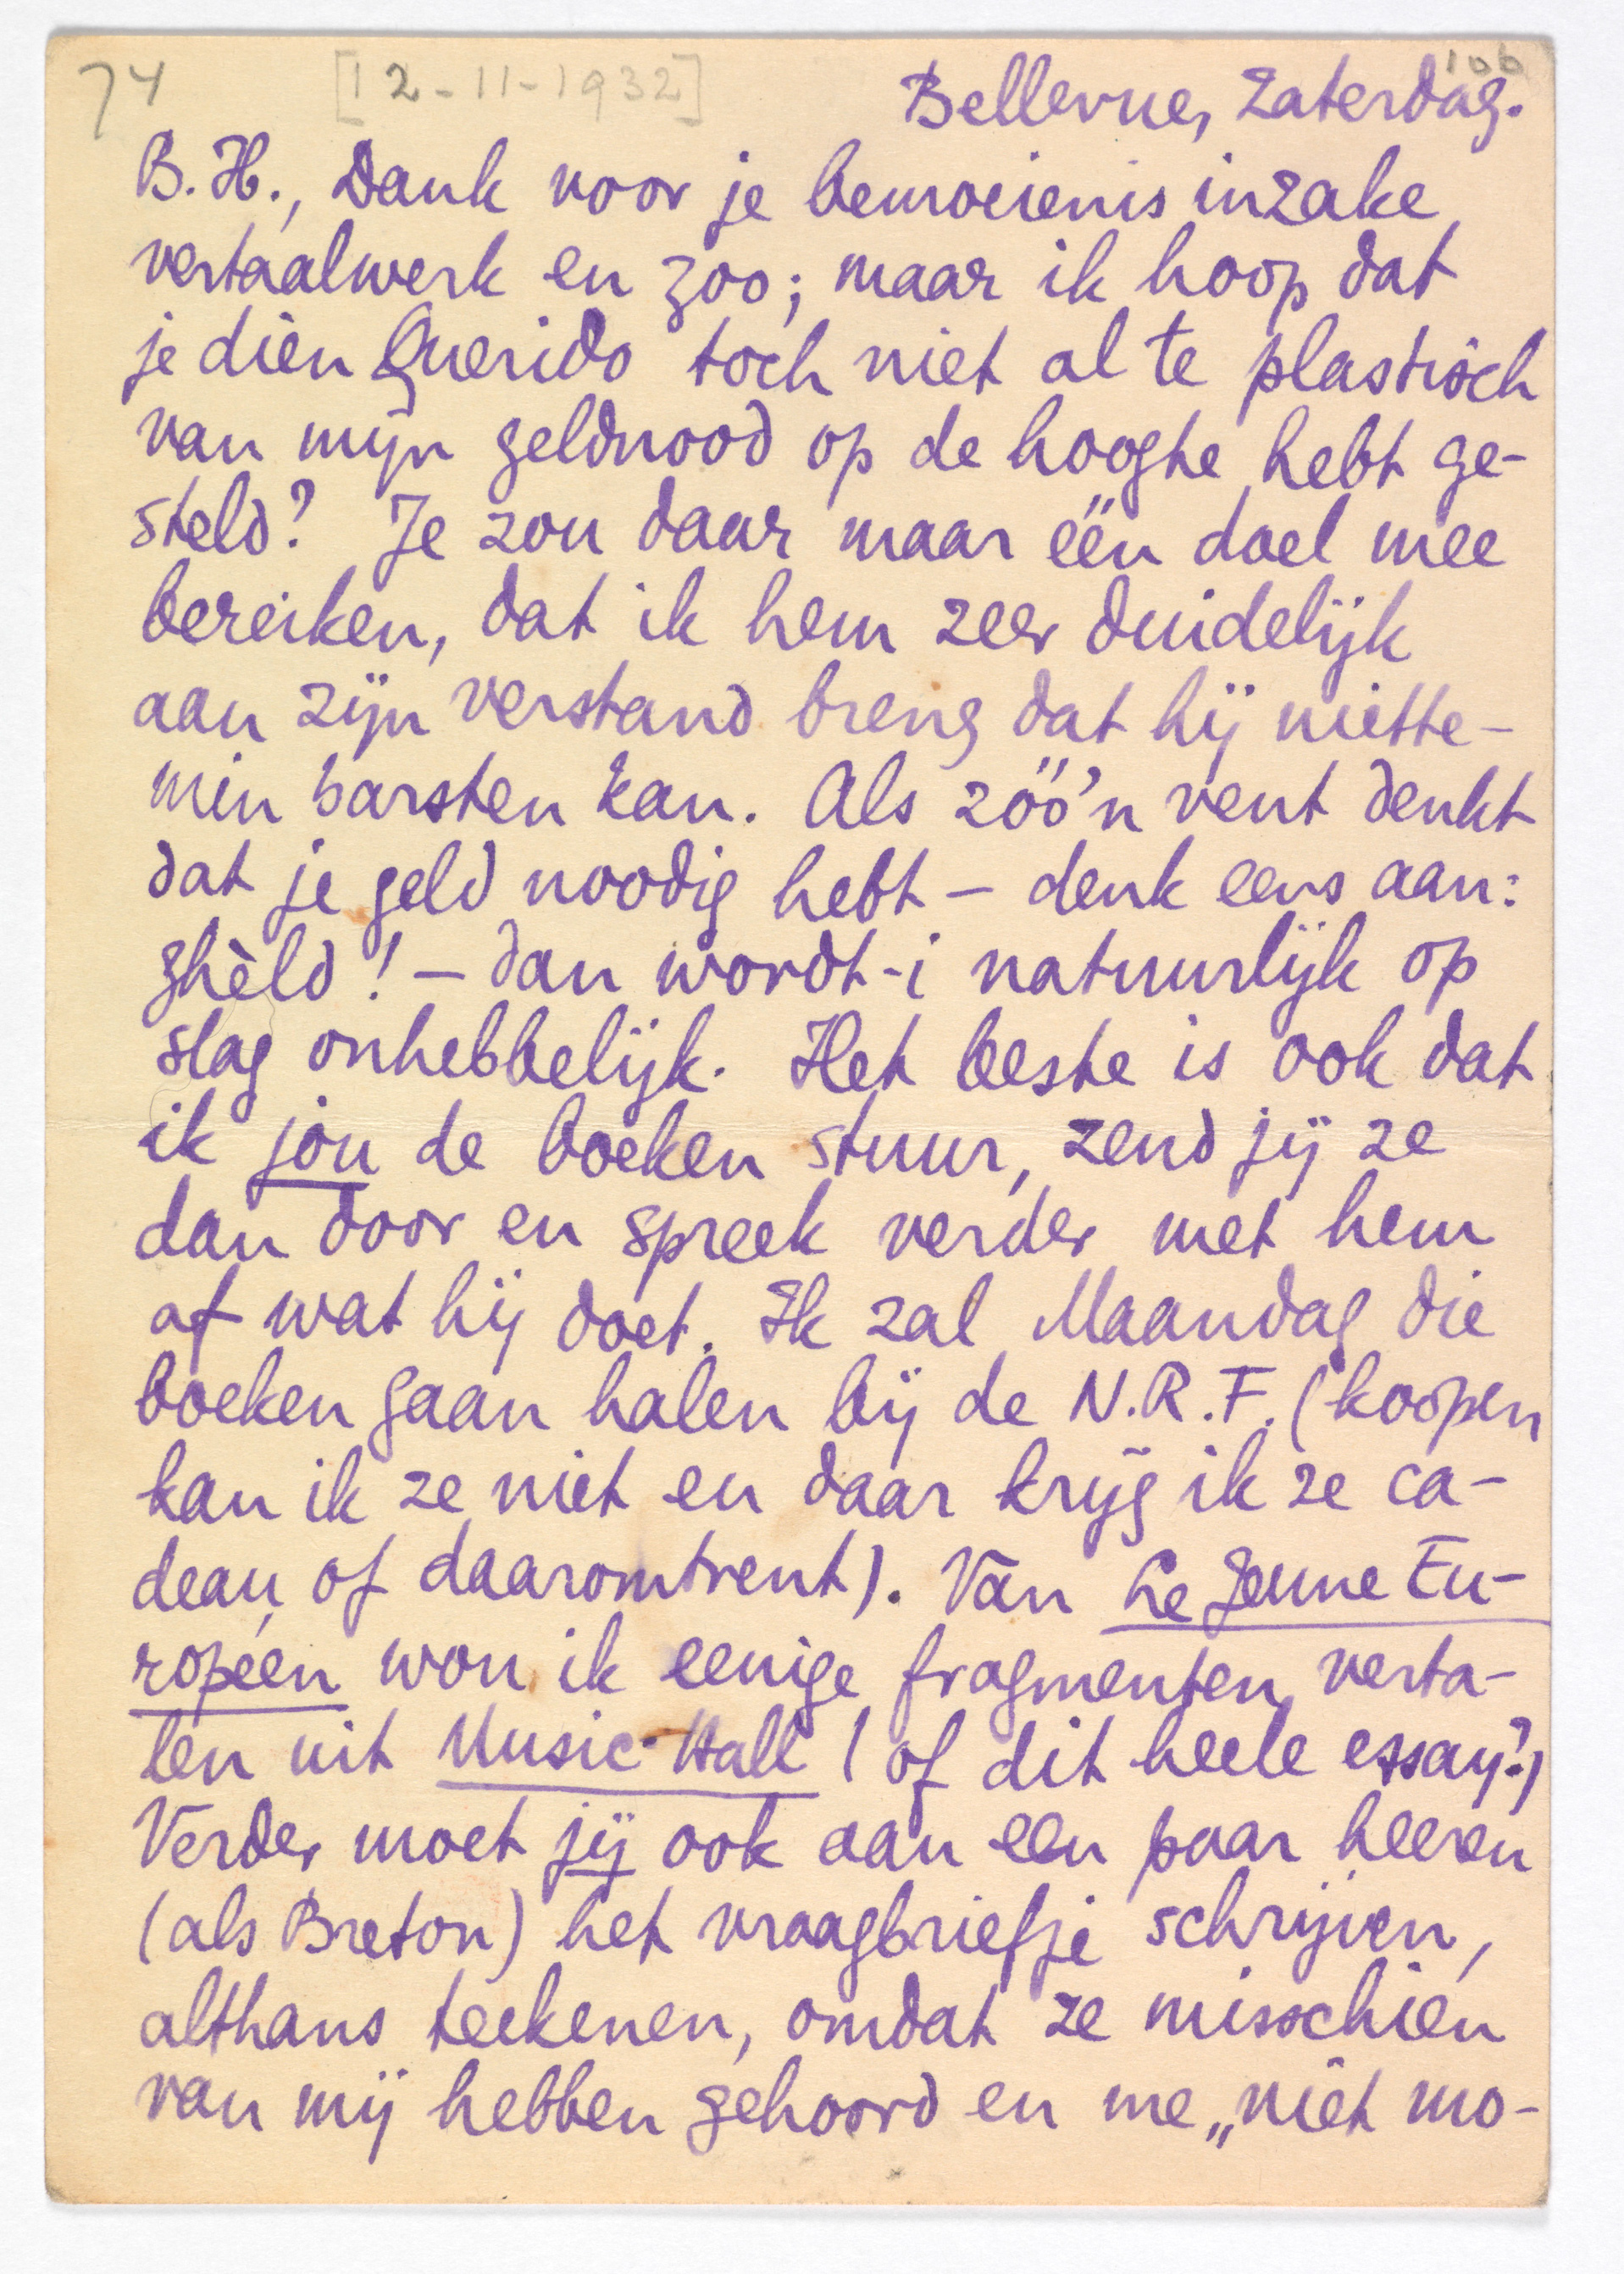 74 [12-11-1932] 106
Bellevue, Zaterdag.
B.H., Dank voor je bemoeienis inzake
vertaalwerk en zoo; maar ik hoop dat
je dien Querido toch niet al te plastisch
van mijn geldnood op de hoogte hebt ge-
steld? Je zou daar maar één doel mee
bereiken, dat ik hem zeer duidelijk
aan zijn verstand breng dat hij niette-
min barsten kan. Als zóó'n vent denkt
dat je geld noodig hebt – denk eens aan:
ghèld! – dan wordt-i natuurlijk op
slag onhebbelijk. Het beste is ook dat
ik jou de boeken stuur, zend jij ze
dan door en spreek verder met hem
af wat hij doet. Ik zal Maandag die
boeken gaan halen bij de N.R.F. (koopen
kan ik ze niet en daar krijg ik ze ca-
deau of daaromtrent). Van Le Jeune Eu-
ropéen wou ik eenige fragmenten verta-
len uit Music-Hall (of dit heele essay?)
Verder moet jij ook aan een paar heeren
(als Breton) het vraagbriefje schrijven,
althans teekenen, omdat ze misschien
van mij hebben gehoord en me „niet mo-